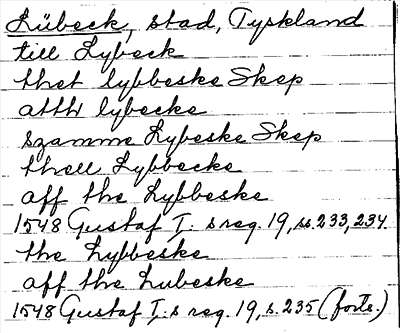 Lübeck, stad, Tyskland
till Lybeck
thet lybbeske Skep
atth lybecke
szamme Lybeske Skep
thell Lybbecke
aff the Lybbeske
1548 Gustaf I:s reg. 19, ss. 233, 234.
the Lybbeske
aff the Lubeske
1548 Gustaf I:s reg. 19, s. 235 (forts.)